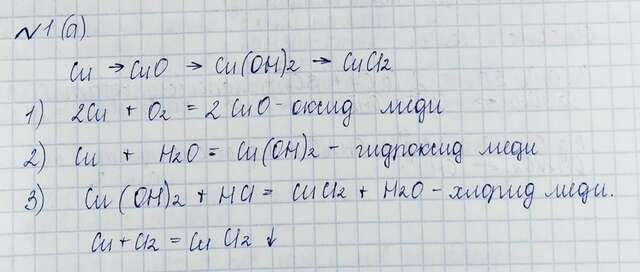 №1(а).
Cu → CuO → Cu(OH)2 → CuCl2
1) 2Cu + O2 = 2CuO - оксид меди
2) Cu + H2O = Cu(OH)2 - гидроксид меди
3) Cu(OH)2 + HCl = CuCl2 + H2O - хлорид меди.
Cu + Cl2 = CuCl2 ↓